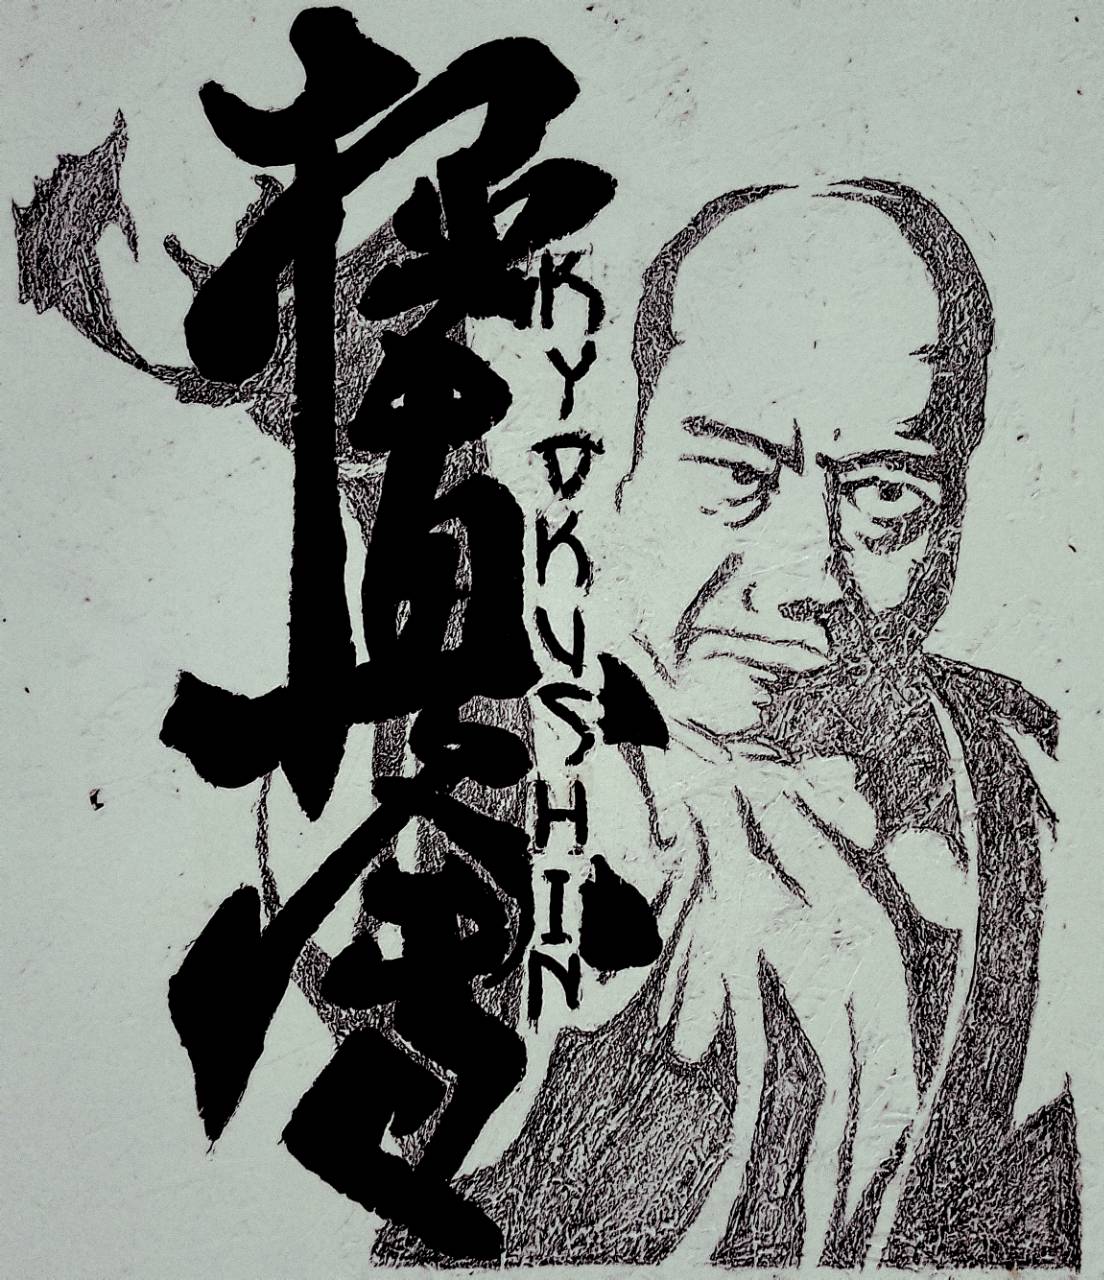 極真会
KYOKUSHIN